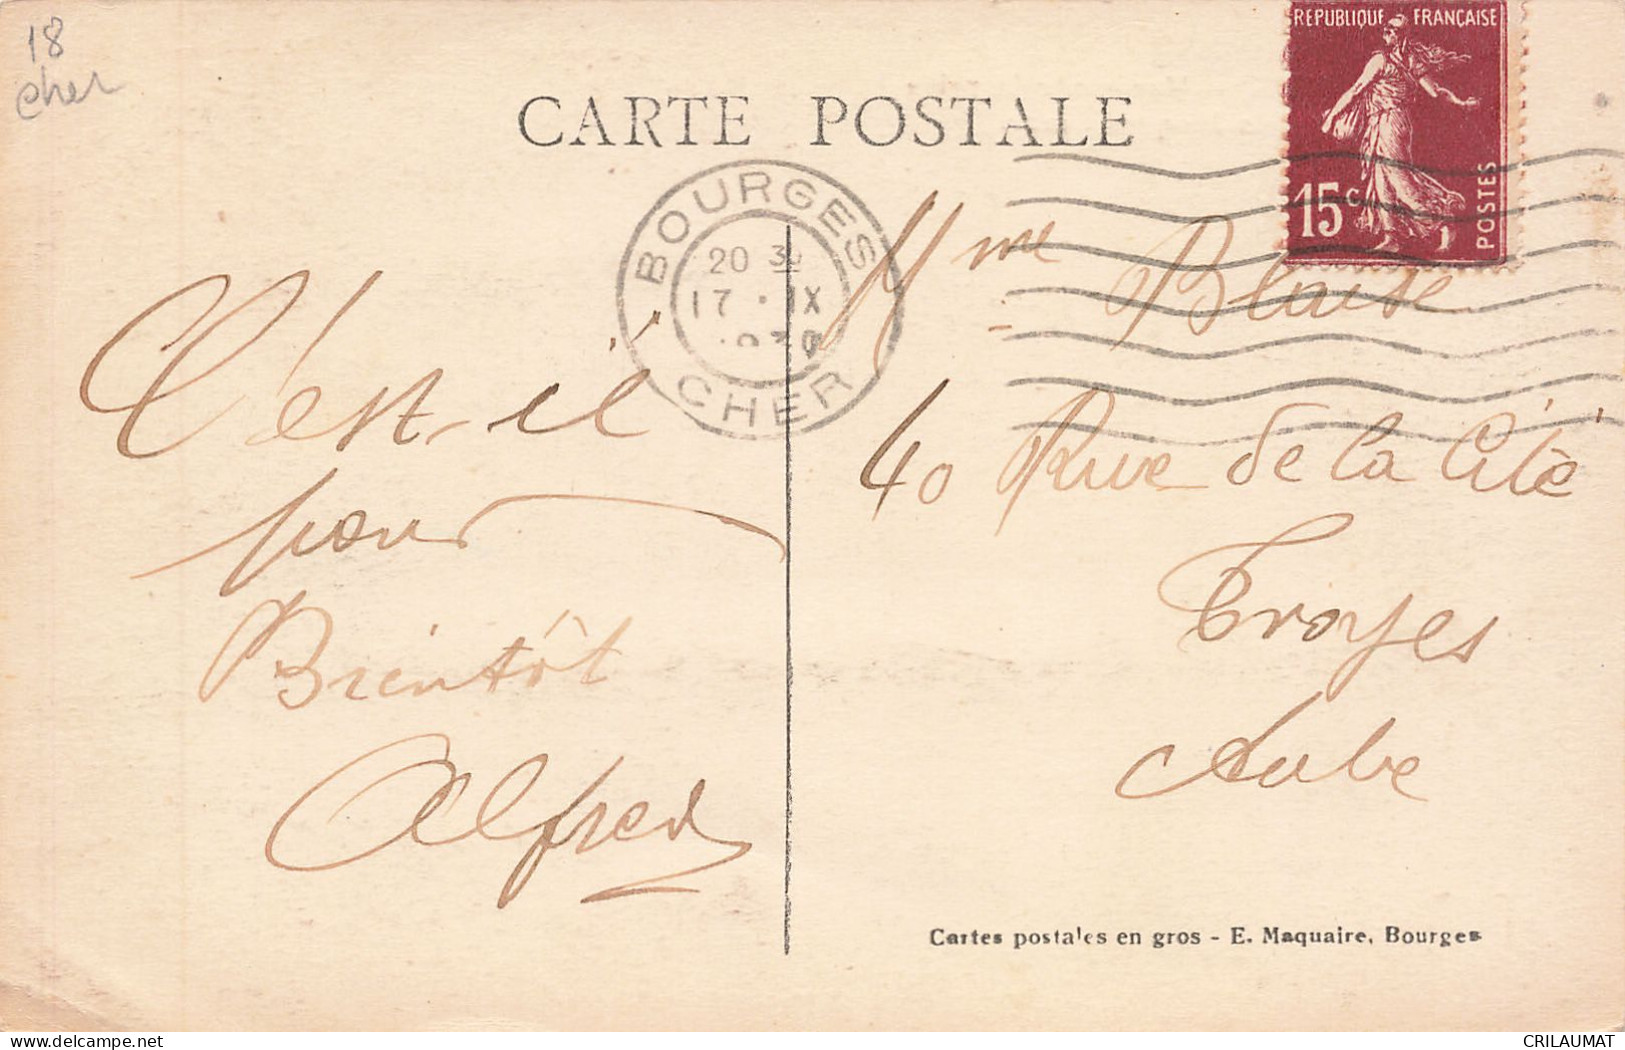 18
Cher
CARTE POSTALE
REPUBLIQUE FRANÇAISE
15c
POSTES
BOURGES
20
17 · IX
CHER
C'est-il
pour
Bientôt
Alfred
Mme Blaise
40 Rue de la Cité
Troyes
Aube
Cartes postales en gros - E. Maquaire, Bourges
delcampe.net
CRILAUMAT